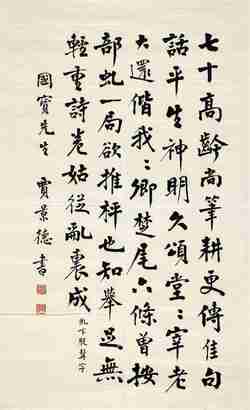 七十高齡尚筆耕更傳佳句
話平生神明久頌堂〻宰老
大還偕我〻卿楚尾六條曾按
部虬一局欲推枰也知舉足無
輕重詩卷姑從亂裏成
虬下脫髯字
國寶先生 賈景德書